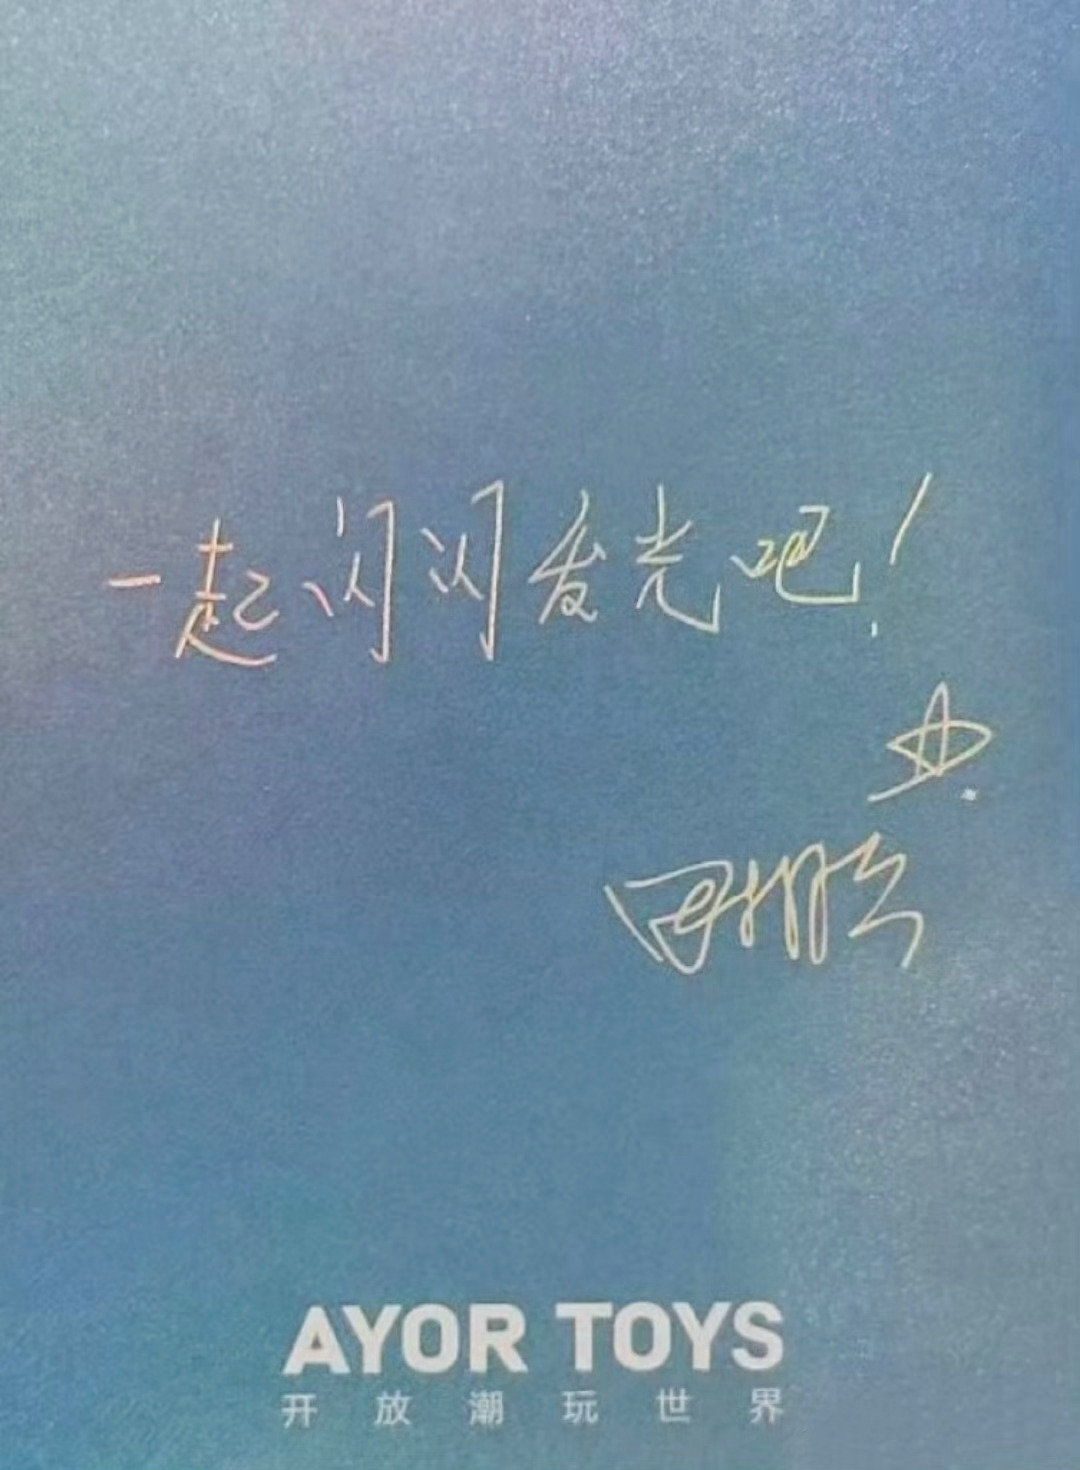 一起闪闪发光吧！
AYOR TOYS
开放潮玩世界